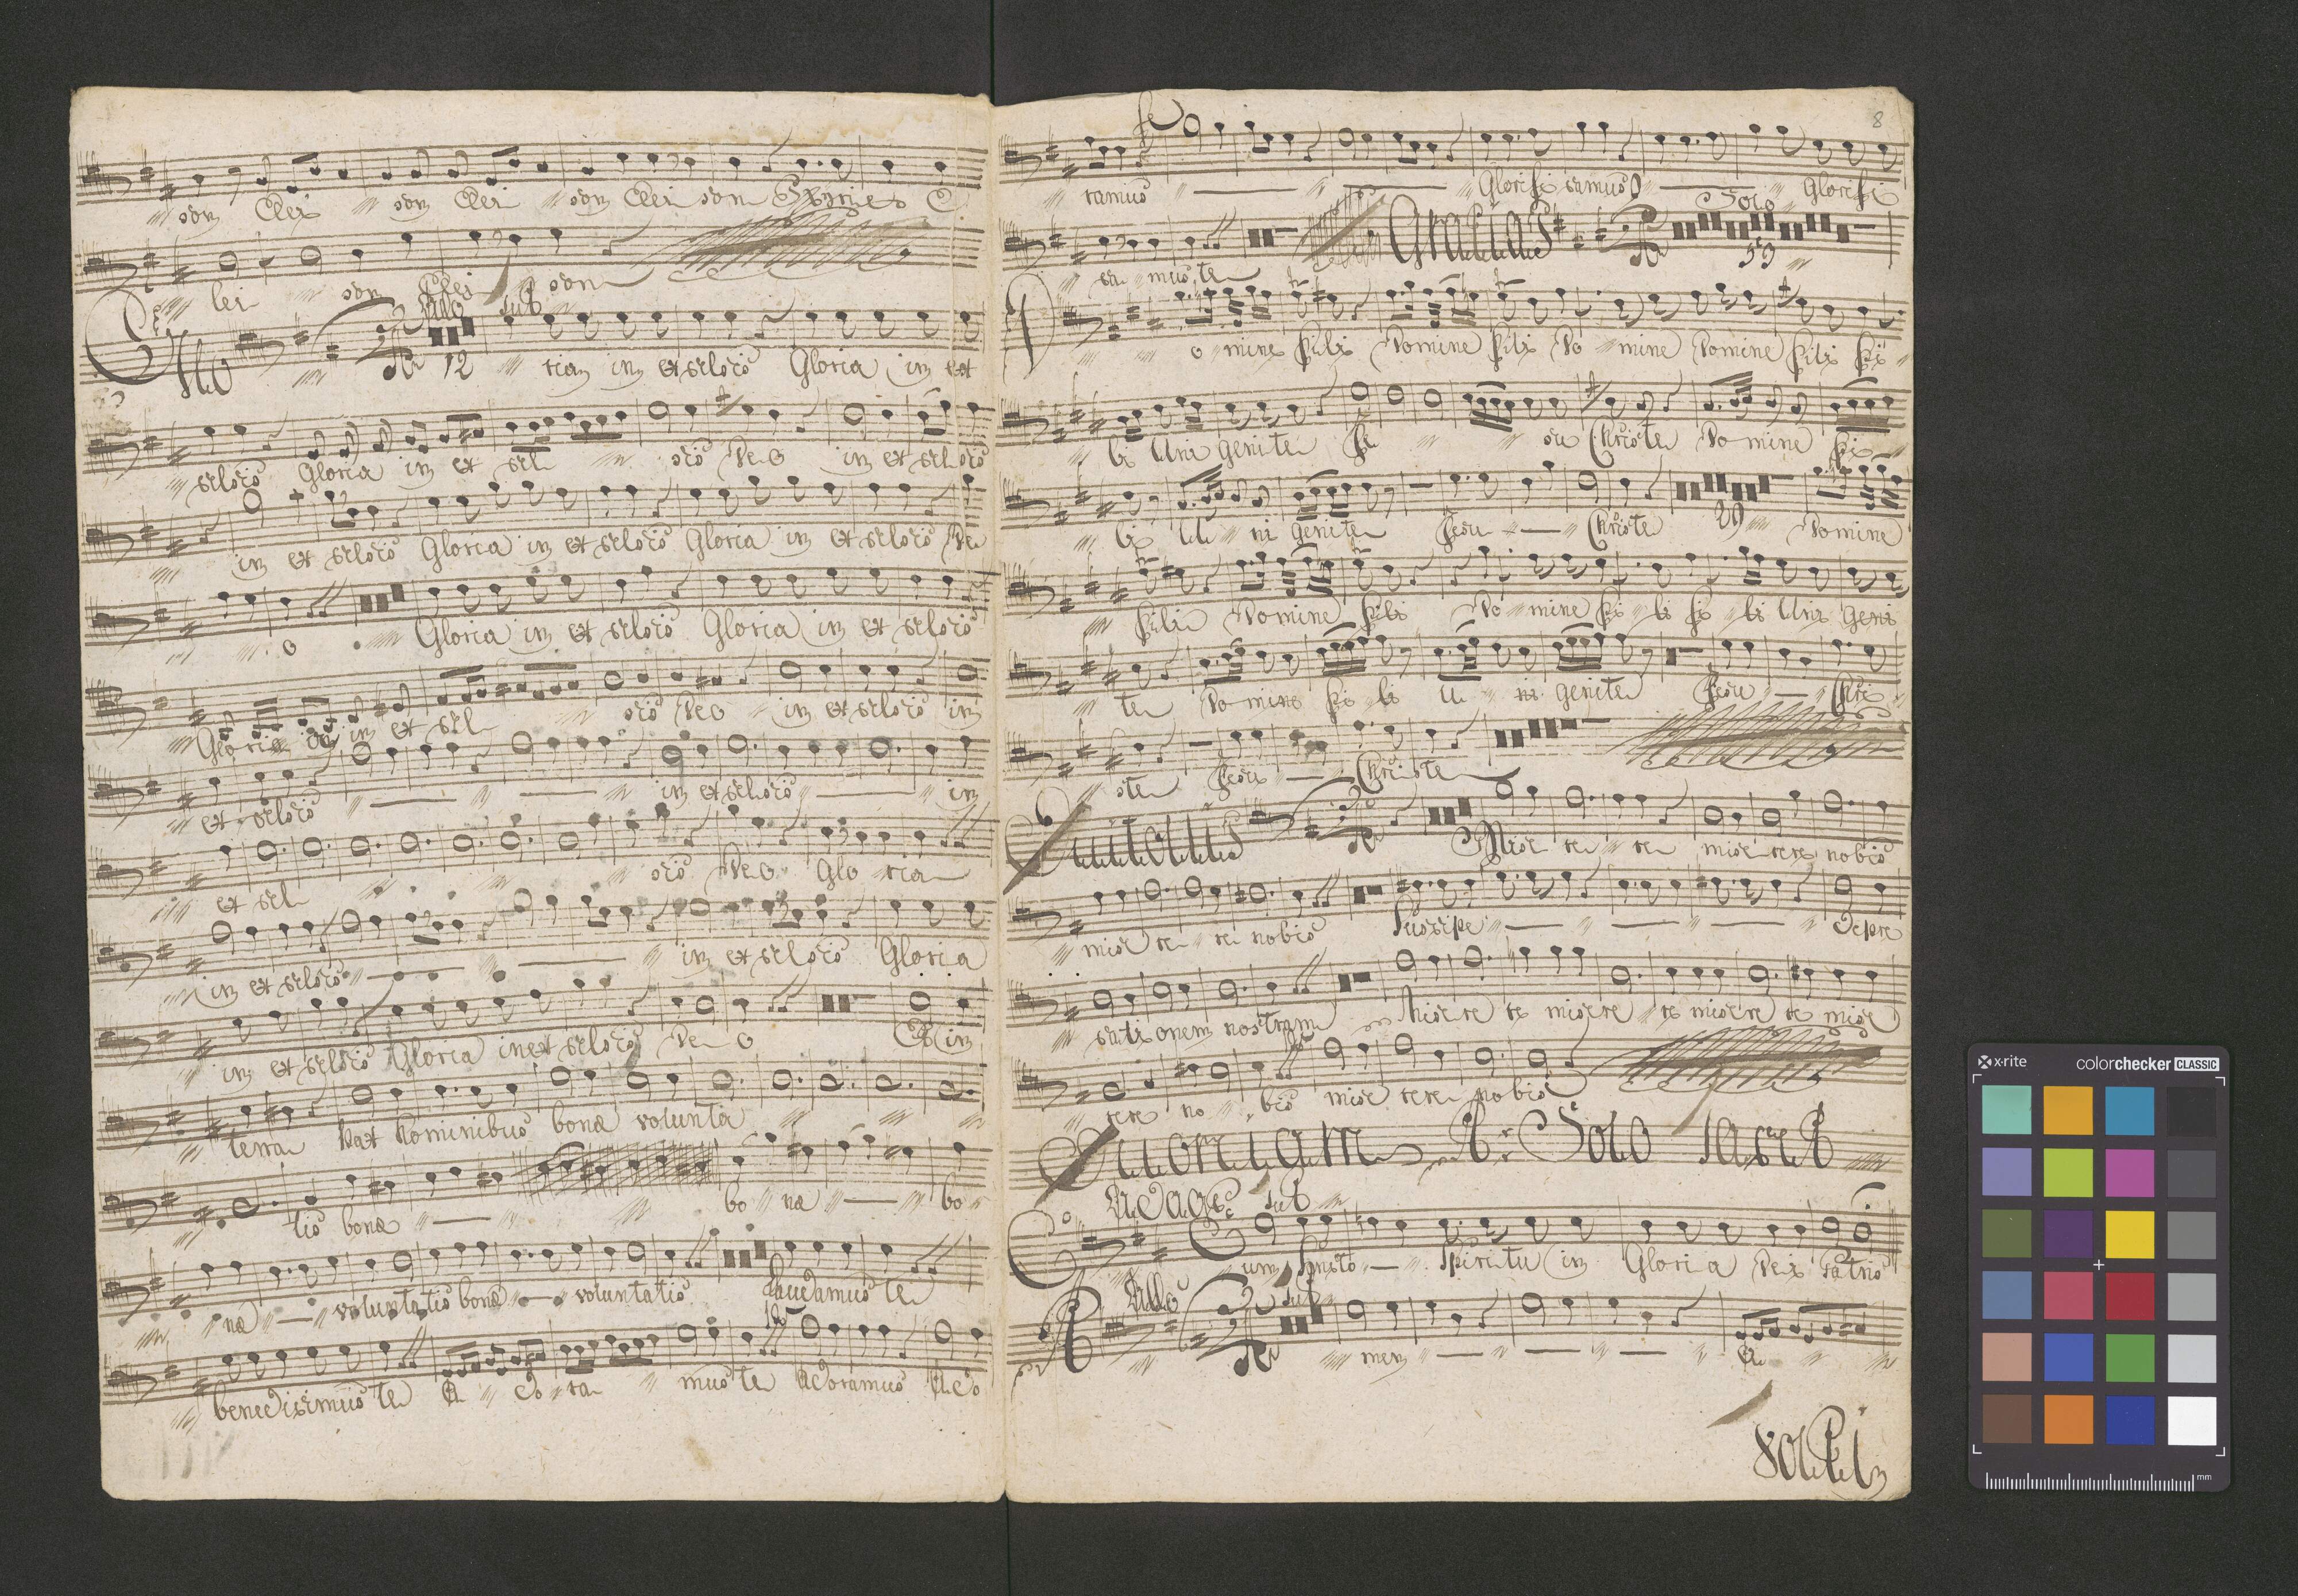 son Elei son Elei son Elei son Kyrie E
lei son Elei son
Allo
12 ria in Exselsis Gloria in Ex
selsis Gloria in Ex sel sis Deo in Exselsis
in Exselsis Gloria in Exselsis Gloria in Exselsis De
o Gloria in Exselsis Gloria in Exselsis
Gloria in Ex sel sis Deo in Exselsis in
Exselsis in Exselsis in
Ex sel sis Deo Glo ria
in Exselsis in Exselsis Gloria
in Exselsis Gloria in Exselsis De o Et in
terra Pax hominibus bonæ volunta
tis bonæ bo næ bo
næ voluntatis bonæ voluntatis Laudamus te
benedicimus te A do ra mus te Adoramus Ado
8
ramus Glorifi camus Glorifi
Solo
ca mus te Gratias 59
Domine Fili Domine Fili Do mine Domine Fili Fi
li Uni genite Je su Christe Do mine Fi
li U ni genite Jesu Christe 29 Domine
Fili Domine Fili Do mine Fi li Fi li Uni Geni
te Do mine Fi li U ni genite Jesu Chri
ste Jesu Christe
Quitollis Mise re re mise rere nobis
mise re re nobis Suscipe Depre
cati onem nostram Misere re misere re misere re mise
rere no bis mise rere nobis
Quoniam A Solo tacet
Adag
Cum Sancto Spiritu in Gloria Dei Patris
Allo
A men A
Volti